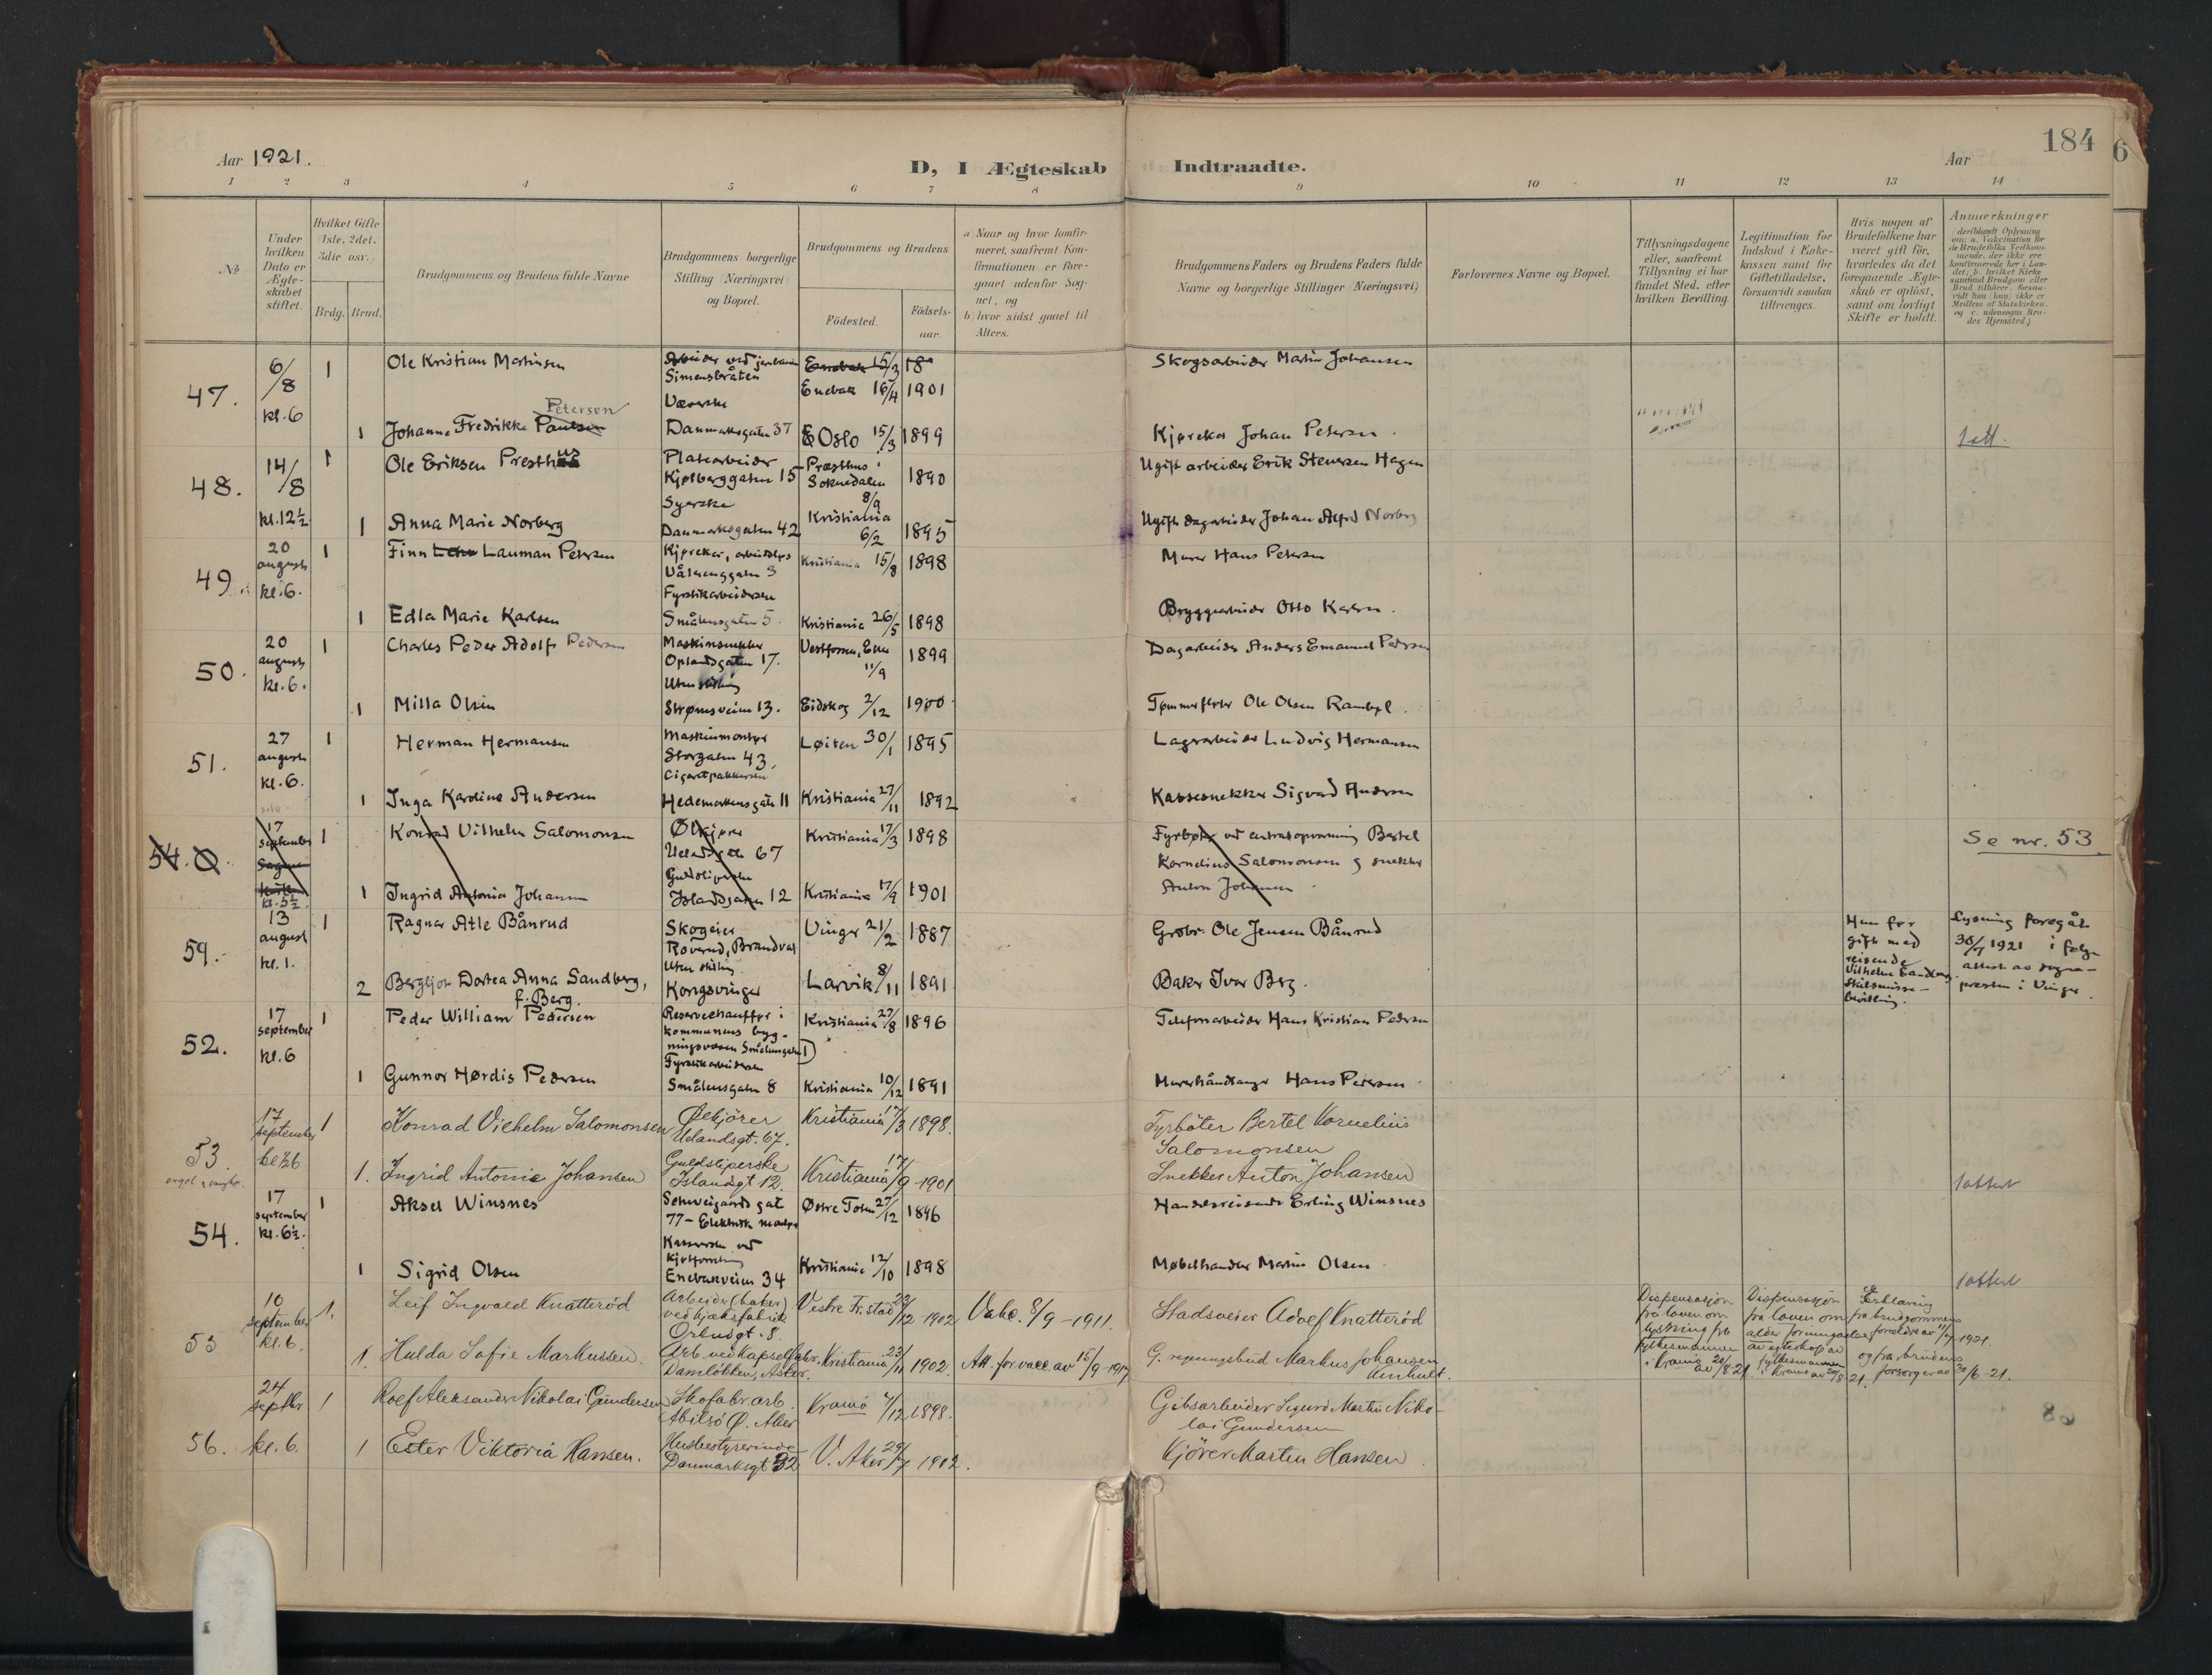 184
6
Aar 1921.
D, I Ægteskab Indtraadte.
Aar
1 2 3 4 5 6 7 8 9 10 11 12 13 14
No
Under
hvilken
Dato er
Ægte-
skabet
stiftet.
Hvilket Gifte
(1ste, 2det,
3die osv.)
Brdg. Brud.
Brudgommens og Brudens fulde Navne
Brudgommens borgerlige
Stilling (Næringsvei)
og Bopæl.
Brudgommens og Brudens
Födested.
Födsels-
aar.
a) Naar og hvor konfir-
meret, saafremt Kon-
firmationen er fore-
gaaet udenfor Sog-
net, og
b) hvor sidst gaaet til
Alters.
Brudgommens Faders og Brudens Faders fulde
Navne og borgerlige Stillinger (Næringsvei)
Forlovernes Navne og Bopæl.
Tillysningsdagene
eller, saafremt
Tillysning ei har
fundet Sted, efter
hvilken Bevilling.
Legitimation for
Indskud i Enke-
kassen samt for
Giftetilladelse,
forsaavidt saadan
tiltrænges.
Hvis nogen af
Brudefolkene har
været gift för,
hvorledes da det
foregaaende Ægte-
skab er oplöst,
samt om lovligt
Skifte er holdt.
Anmærkninger
(deriblandt Oplysning
om: a. Vakcination for
de Brudefolks Vedkom-
mende, der ikke ere
konfirmerede her i Lan-
det; b. hvilket Kirke-
samfund Brudgom eller
Brud tilhörer, forsaa-
vidt han (hun) ikke er
Medlem af Statskirken,
og c. udensogns Bru-
des Hjemsted.)
47.
6/8
kl. 6
1
Ole Kristian Martinsen
Arbeider ved jernbanen
Simensbråten
Enebak 15/3 18
Enebak 16/4 1901
Skogsarbeider Martin Johansen
Væverske
Petersen
1 Johanne Fredrikke Paulsen
Danmarksgaten 37
Oslo 15/3 1899
Kjørekar Johan Petersen.
1 att.
48.
14/8
kl. 12½
1
Ole Eriksen Presthus
Platearbeider
Kjølberggaten 15
Præsthus i
Soknedalen
8/9
1890
Ugift arbeider Erik Stenersen Hagen
Syerske
1 Anna Marie Norberg
Danmarksgaten 42
Kristiania
6/2
1895
Ugift dagarbeider Johan Alfred Norberg
49.
20
august
kl. 6.
1
Finn Lauman Petersen
Kjørekar, arbeidsløs
Vålerenggaten 3
Kristiania 15/8 1898
Murer Hans Petersen
Fyrstikarbeiderske
1 Edla Marie Karlsen
Smålensgaten 5.
Kristiania 26/5 1898
Bryggearbeider Otto Karlsen.
50.
20
august
kl. 6.
1
Charles Peder Adolf Pedersen
Maskinsnekker
Oplandsgaten 17.
Vestfossen, Eker
11/9
1899
Dagarbeider Anders Emanuel Pedersen
Uten stilling
1 Milla Olsen
Strømsveien 13.
Eidskog 2/12 1900
Tømmerfløter Ole Olsen Rambøl.
51.
27
august
kl. 6.
1
Herman Hermansen
Maskinmontør
Storgaten 43,
Løiten 30/1 1895
Lagerarbeider Ludvig Hermansen
Cigaretpakkerske
1 Inga Karoline Andersen
Hedemarkensgate 11
Kristiania 27/11 1892
Kassesnekker Sigvard Andersen
54.
17
september
kl. 5½
1
Konrad Vilhelm Salomonsen
Ølkjører
Uelandsgate 67
Kristiania 17/3 1898
Fyrbøter ved centralopvarmning Bertel
Kornelius Salomonsen og snekker
Anton Johansen
Se nr. 53
Guldsliperske
1 Ingrid Antonia Johansen
Islandsgaten 12
Kristiania 17/9 1901
59.
13
august
kl. 1.
1
Ragnar Atle Bånrud
Skogeier
Roverud, Brandval
Vinger 21/2 1887
Grdbr. Ole Jensen Bånrud
Hun før
gift med
reisende
Vilhelm Sandberg.
Skilsmisse-
bevilling.
Lysning foregåt
30/7 1921 i følge
attest av sogne-
presten i Vinger.
Uten stilling
2 Bergljot Dortea Anna Sandberg,
f. Berg.
Kongsvinger
Larvik 8/11 1891
Baker Ivar Berg.
52.
17
september
kl. 6
1
Peder William Pedersen
Reservechauffør i
kommunens byg-
ningsvæsen Smålensgaten 1
Kristiania 27/8 1896
Telefonarbeider Hans Kristian Pedersen
Fyrstikarbeiderske
1 Gunnor Hørdis Pedersen
Smålensgaten 8
Kristiania 10/12 1891
Murerhåndlanger Hans Petersen
53
17
september
kl ½6
1
Konrad Vilhelm Salomonsen
Ølkjörer
Uelandsgt. 67.
Kristiania 17/3 1898.
Fyrböter Bertel Kornelius
Salomonsen
1. Ingrid Antonie Johansen
Guldsliperske
Islandsgt 12.
Kristiania 17/9 1901
Snekker Anton Johansen
1 attest
54.
17
september
kl. 6½.
1
Aksel Winsnes
Schweigaards gat
77 - Elektrisk montør
Østre Toten 27/12 1896
Handelsreisende Erling Winsnes
Kasserske ved
kjøtforretning
1 Sigrid Olsen
Enebakveien 34
Kristiania 12/10 1898
Møbelhandler Martin Olsen
1 attest
55
10
september
kl. 6.
1.
Leif Ingvald Knatteröd
Arbeider (baker)
ved kjæksfabrik
Örlandsgt. 8.
Vestre Fr.stad 1902
Vakc. 8/9 - 1911.
Stadsveier Adolf Knatteröd
Dispensasjon
fra loven om
lysning fra
fylkesmannen
i Krania av 20/8-21.
Dispensasjon
fra loven om
alder for inngaaelse
av egteskap av
fylkesmannen
i Krania av 20/8 21.
Erklæring
fra brudgommens
foreldre av 11/7 1921.
og fra brudens
forsorger av 20/6-21.
1. Hulda Sofie Markussen.
Arb. ved Kapselfabr.
Damløkken, Aker.
Kristiania 23/11 1902.
Att. for vacc. av 15/9-1917
G. regningsbud Markus Johansen
56.
24
septbr
kl. 6.
1
Rolf Aleksander Nikolai Gundersen
Skofabr.arb.
Abilsö Ö. Aker
Krania 4/12 1898.
Gibsarbeider Sigurd Martin Niko-
lai Gundersen
1 Ester Viktoria Hansen.
Husbestyrerinde
Danmarksgt 32
V. Aker 29/7 1902.
Kjörer Martin Hansen